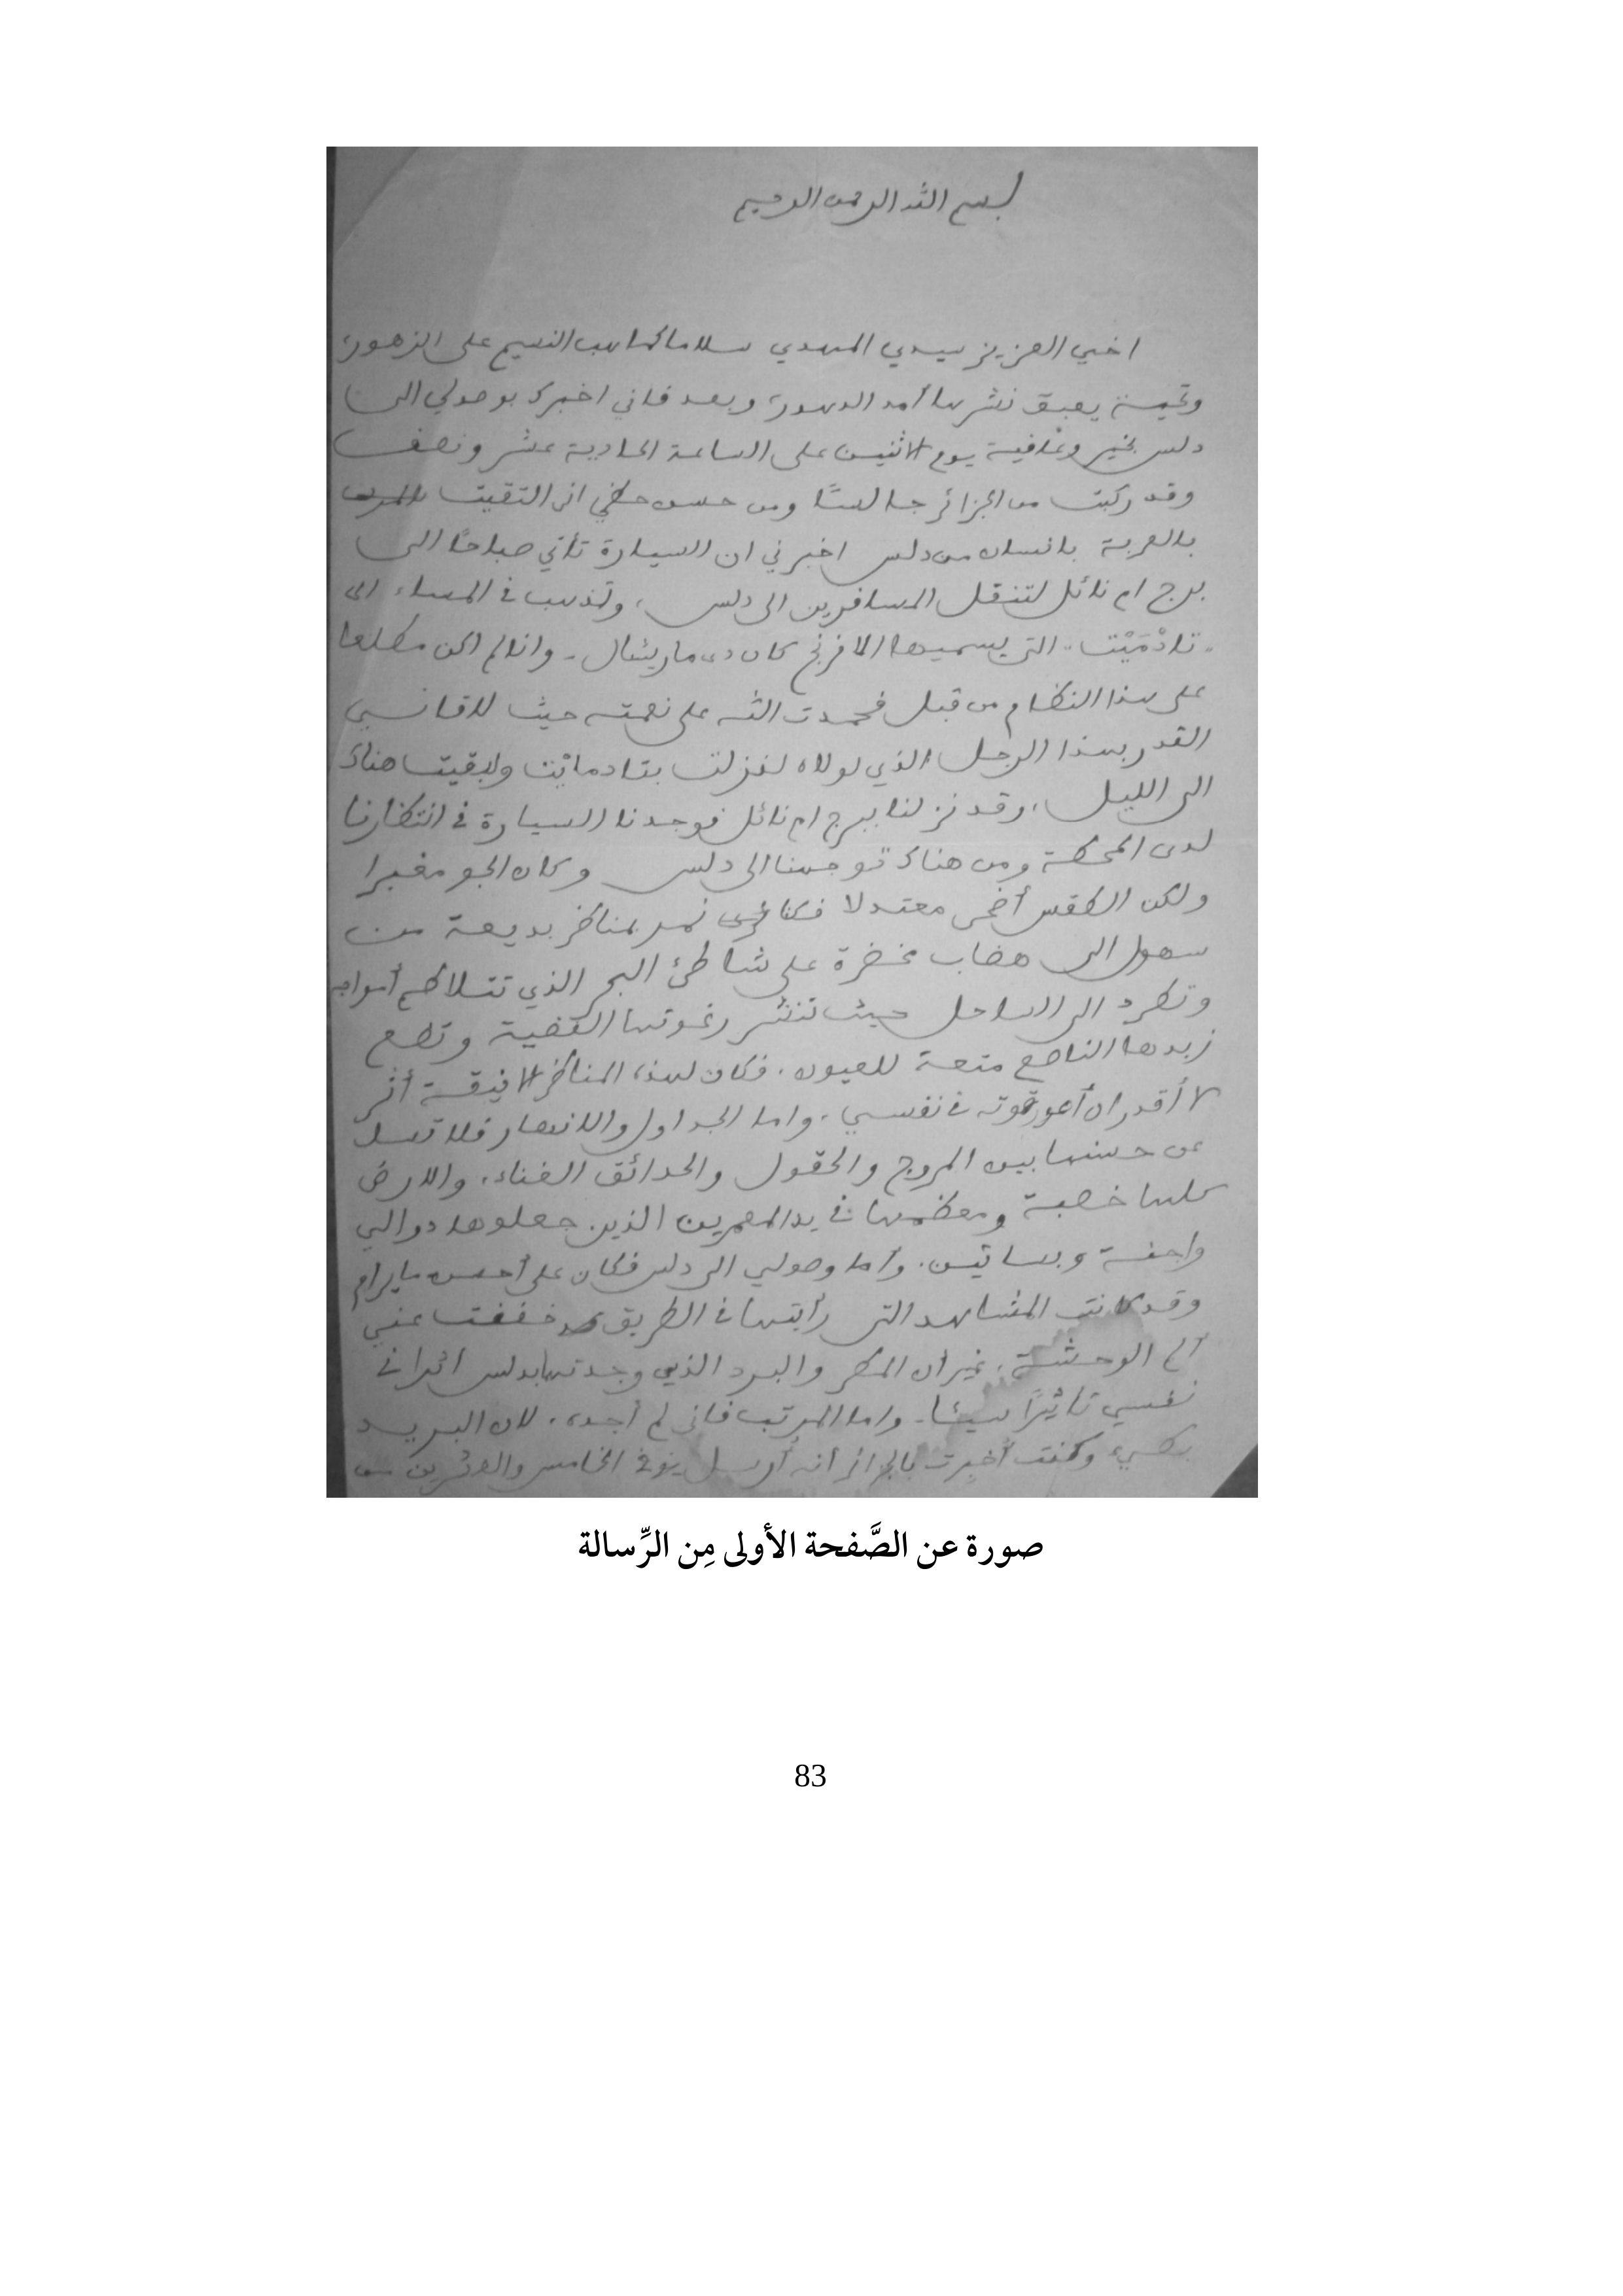 بسم الله الرحمن الرحيم
اخي العزيز سيدي المهدي سلاما كما هب النسيم على الزهور،
وتحية يعبق نشرها أمد الدهور، وبعد فاني اخبرك بوصولي الى
دلس بخير وعافية يوم الاثنين على الساعة الحادية عشر ونصف
وقد ركبت من الجزائر جالسًا ومن حسن حظي اني التقيت
بالعربة بانسان من دلس اخبرني ان السيارة تأتي صباحًا الى
برج ام نائل لتنقل المسافرين الى دلس، وتذهب في المساء الى
"تادْمَيْت" التي يسميها الافرنج كان دى ماريشال - وانا لم اكن مطلعا
على هذا النظام من قبل فحمدت الله على نعمته حيث لاقاني
القدر بهذا الرجل الذي لولاه لنزلت بتادمايْت ولبقيت هناك
الى الليل، وقد نزلنا ببرج ام نائل فوجدنا السيارة في انتظارنا
لدى المحطة ومن هناك توجهنا الى دلس وكان الجو مغبرا
ولكن الطقس أضحى معتدلا فكنا نمر بمناظر بديعة من
سهول الى هضاب مخضرة على شاطئ البحر الذي تتلاطم أمواجه
وتطرد الى الساحل حيث تنثر رغوتها الفضية
زبدها الناصع متعة للعيون. فكان لهذه المناظر الانيقة أثر
لا أقدر ان في نفسي، واما الجداول والانهار فلا تسل
عن حسنها بين المروج والحقول والحدائق الغناء، والارض
كلها خصبة ومعظمها في يد المعمرين الذين جعلوها دوالي
وبساتين. وأما وصولي الى دلس فكان على أحسن ما يرام
وقد كانت المشاهد التي رأيتها في الطريق خففت عني
ألم الوحشة، غير أن المطر والبرد الذي وجدتها بدلس اثرا في
نفسي تاثيرًا سيئا - واما المرتب فاني لم أجده، لان البريد
بطيء وكنت أخبرت بالجزائر أنه أرسل يوم الخامس والعشرين من
صورة عن الصَّفحة الأولى مِن الرِّسالة
83